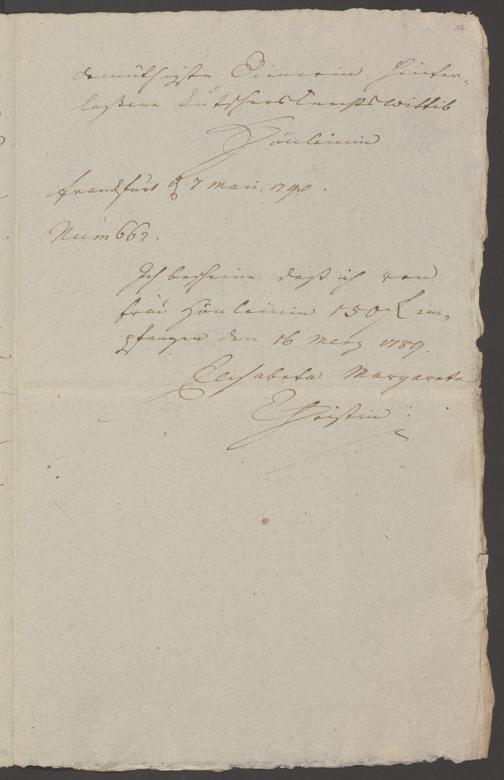 demüthigste Dienerin hinter-
laßene Kutschers Knechts Wittib
Hönleinin
Franckfurt d 7 Maii. 1790.
Num 662.
Ich bescheine daß ich von
frau Hönleinin 150 f em-
pfangen den 16 Merz 1789.
Elisabeta Margareta
Christin